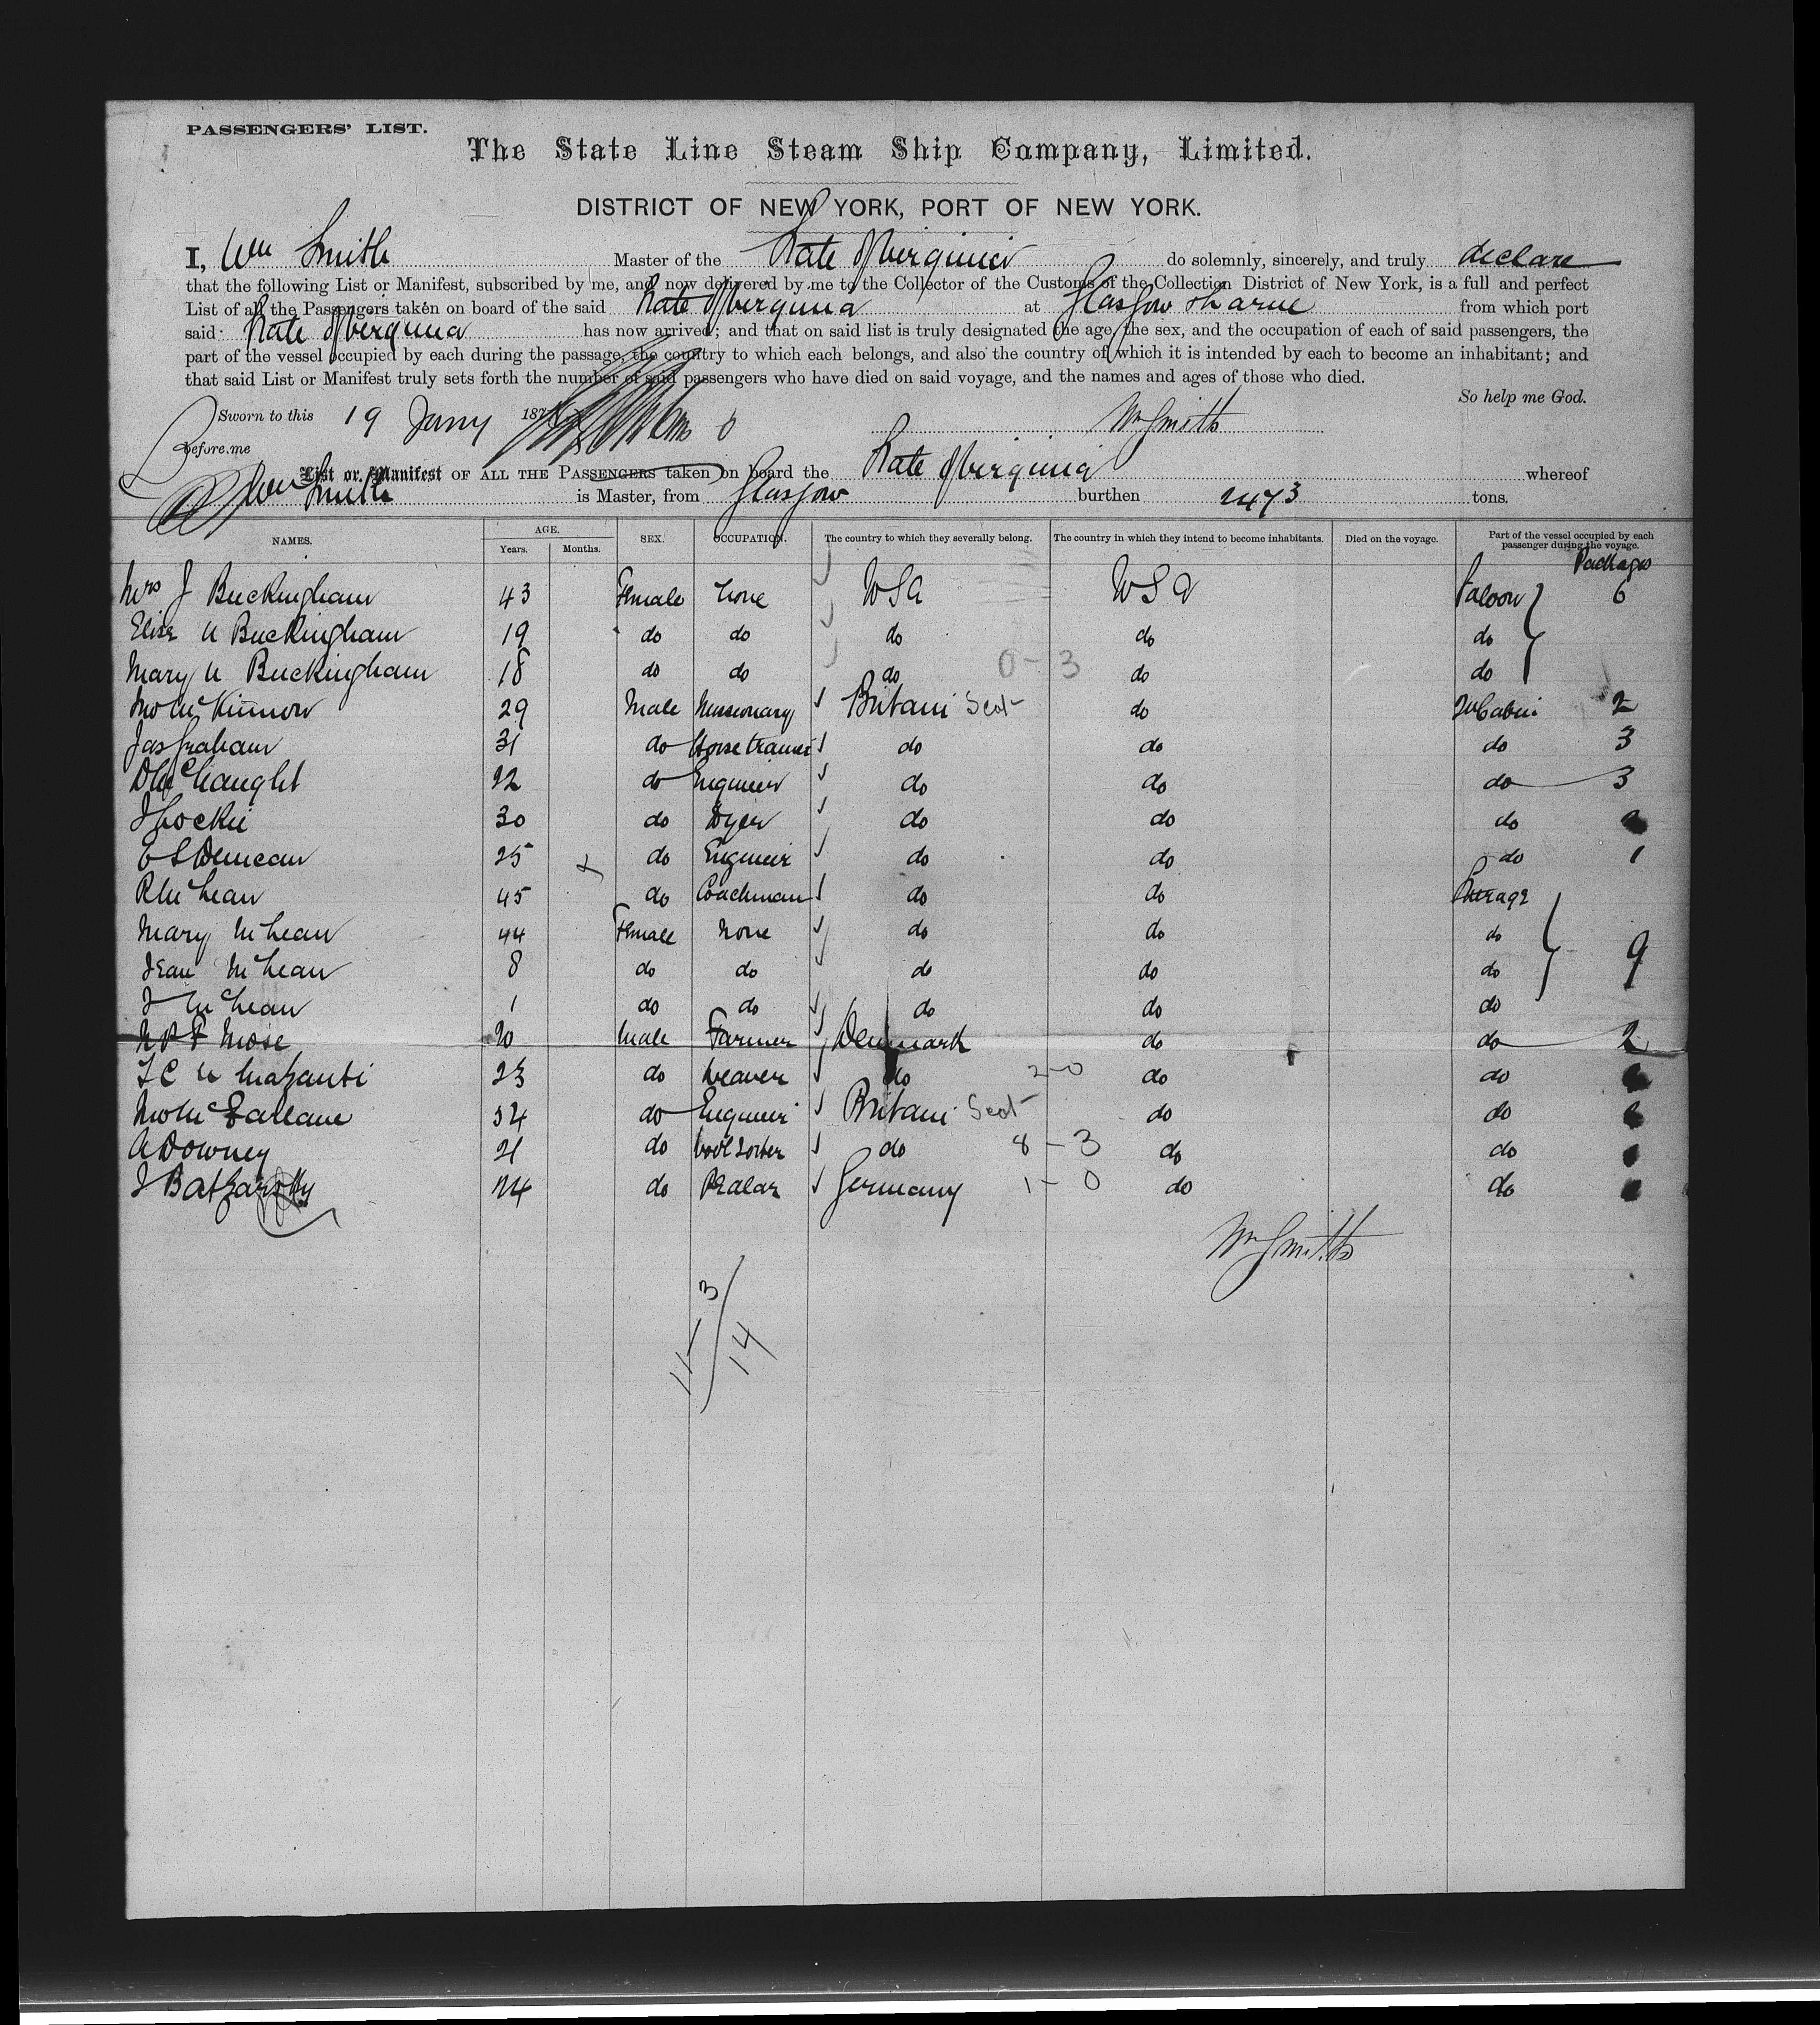 PASSENGERS' LIST.
The State Line Steam Ship Company, Limited.
DISTRICT OF NEW YORK, PORT OF NEW YORK.
I, Wm Smith Master of the State of Virginia do solemnly, sincerely, and truly declare
that the following List or Manifest, subscribed by me, and now delivered by me to the Collector of the Customs of the Collection District of New York, is a full and perfect
List of all the Passengers taken on board of the said State of Virginia at Glasgow & Larne from which port
said State of Virginia has now arrived; and that on said list is truly designated the age, the sex, and the occupation of each of said passengers, the
part of the vessel occupied by each during the passage, the country to which each belongs, and also the country of which it is intended by each to become an inhabitant; and
that said List or Manifest truly sets forth the number of said passengers who have died on said voyage, and the names and ages of those who died.
So help me God.
Sworn to this 19 Jany 187
Wm Smith
Before me
List or Manifest OF ALL THE PASSENGERS taken on board the State of Virginia whereof
Wm Smith is Master, from Glasgow burthen 2473 tons.
NAMES. AGE. Years. Months. SEX. OCCUPATION. The country to which they severally belong. The country in which they intend to become inhabitants. Died on the voyage. Part of the vessel occupied by each passenger during the voyage.
Packages
Mrs J Buckingham 43 Female None USA USA Saloon 6
Eliza Buckingham 19 do do do do do
Mary Buckingham 18 do do do 0-3 do do
Jno McKinnon 29 Male Missionary Britain Scot do In Cabin 2
Jas Graham 31 do Horse trainer do do do 3
D McNaught 22 do Engineer do do do 3
J Lockie 30 do Dyer do do do
Duncan 25 do Engineer do do do 1
R McLean 45 do Coachman do do Steerage
Mary McLean 44 Female None do do do
Jean McLean 8 do do do do do 9
J McLean 1 do do do do do
Mose 20 Male Farmer Denmark do do 2
23 do Weaver do 2-0 do do
34 do Engineer Britain Scot do do
A Downey 21 do Wool Sorter do 8-3 do do
J 24 do Germany 1-0 do do
Wm Smith
3
11
14